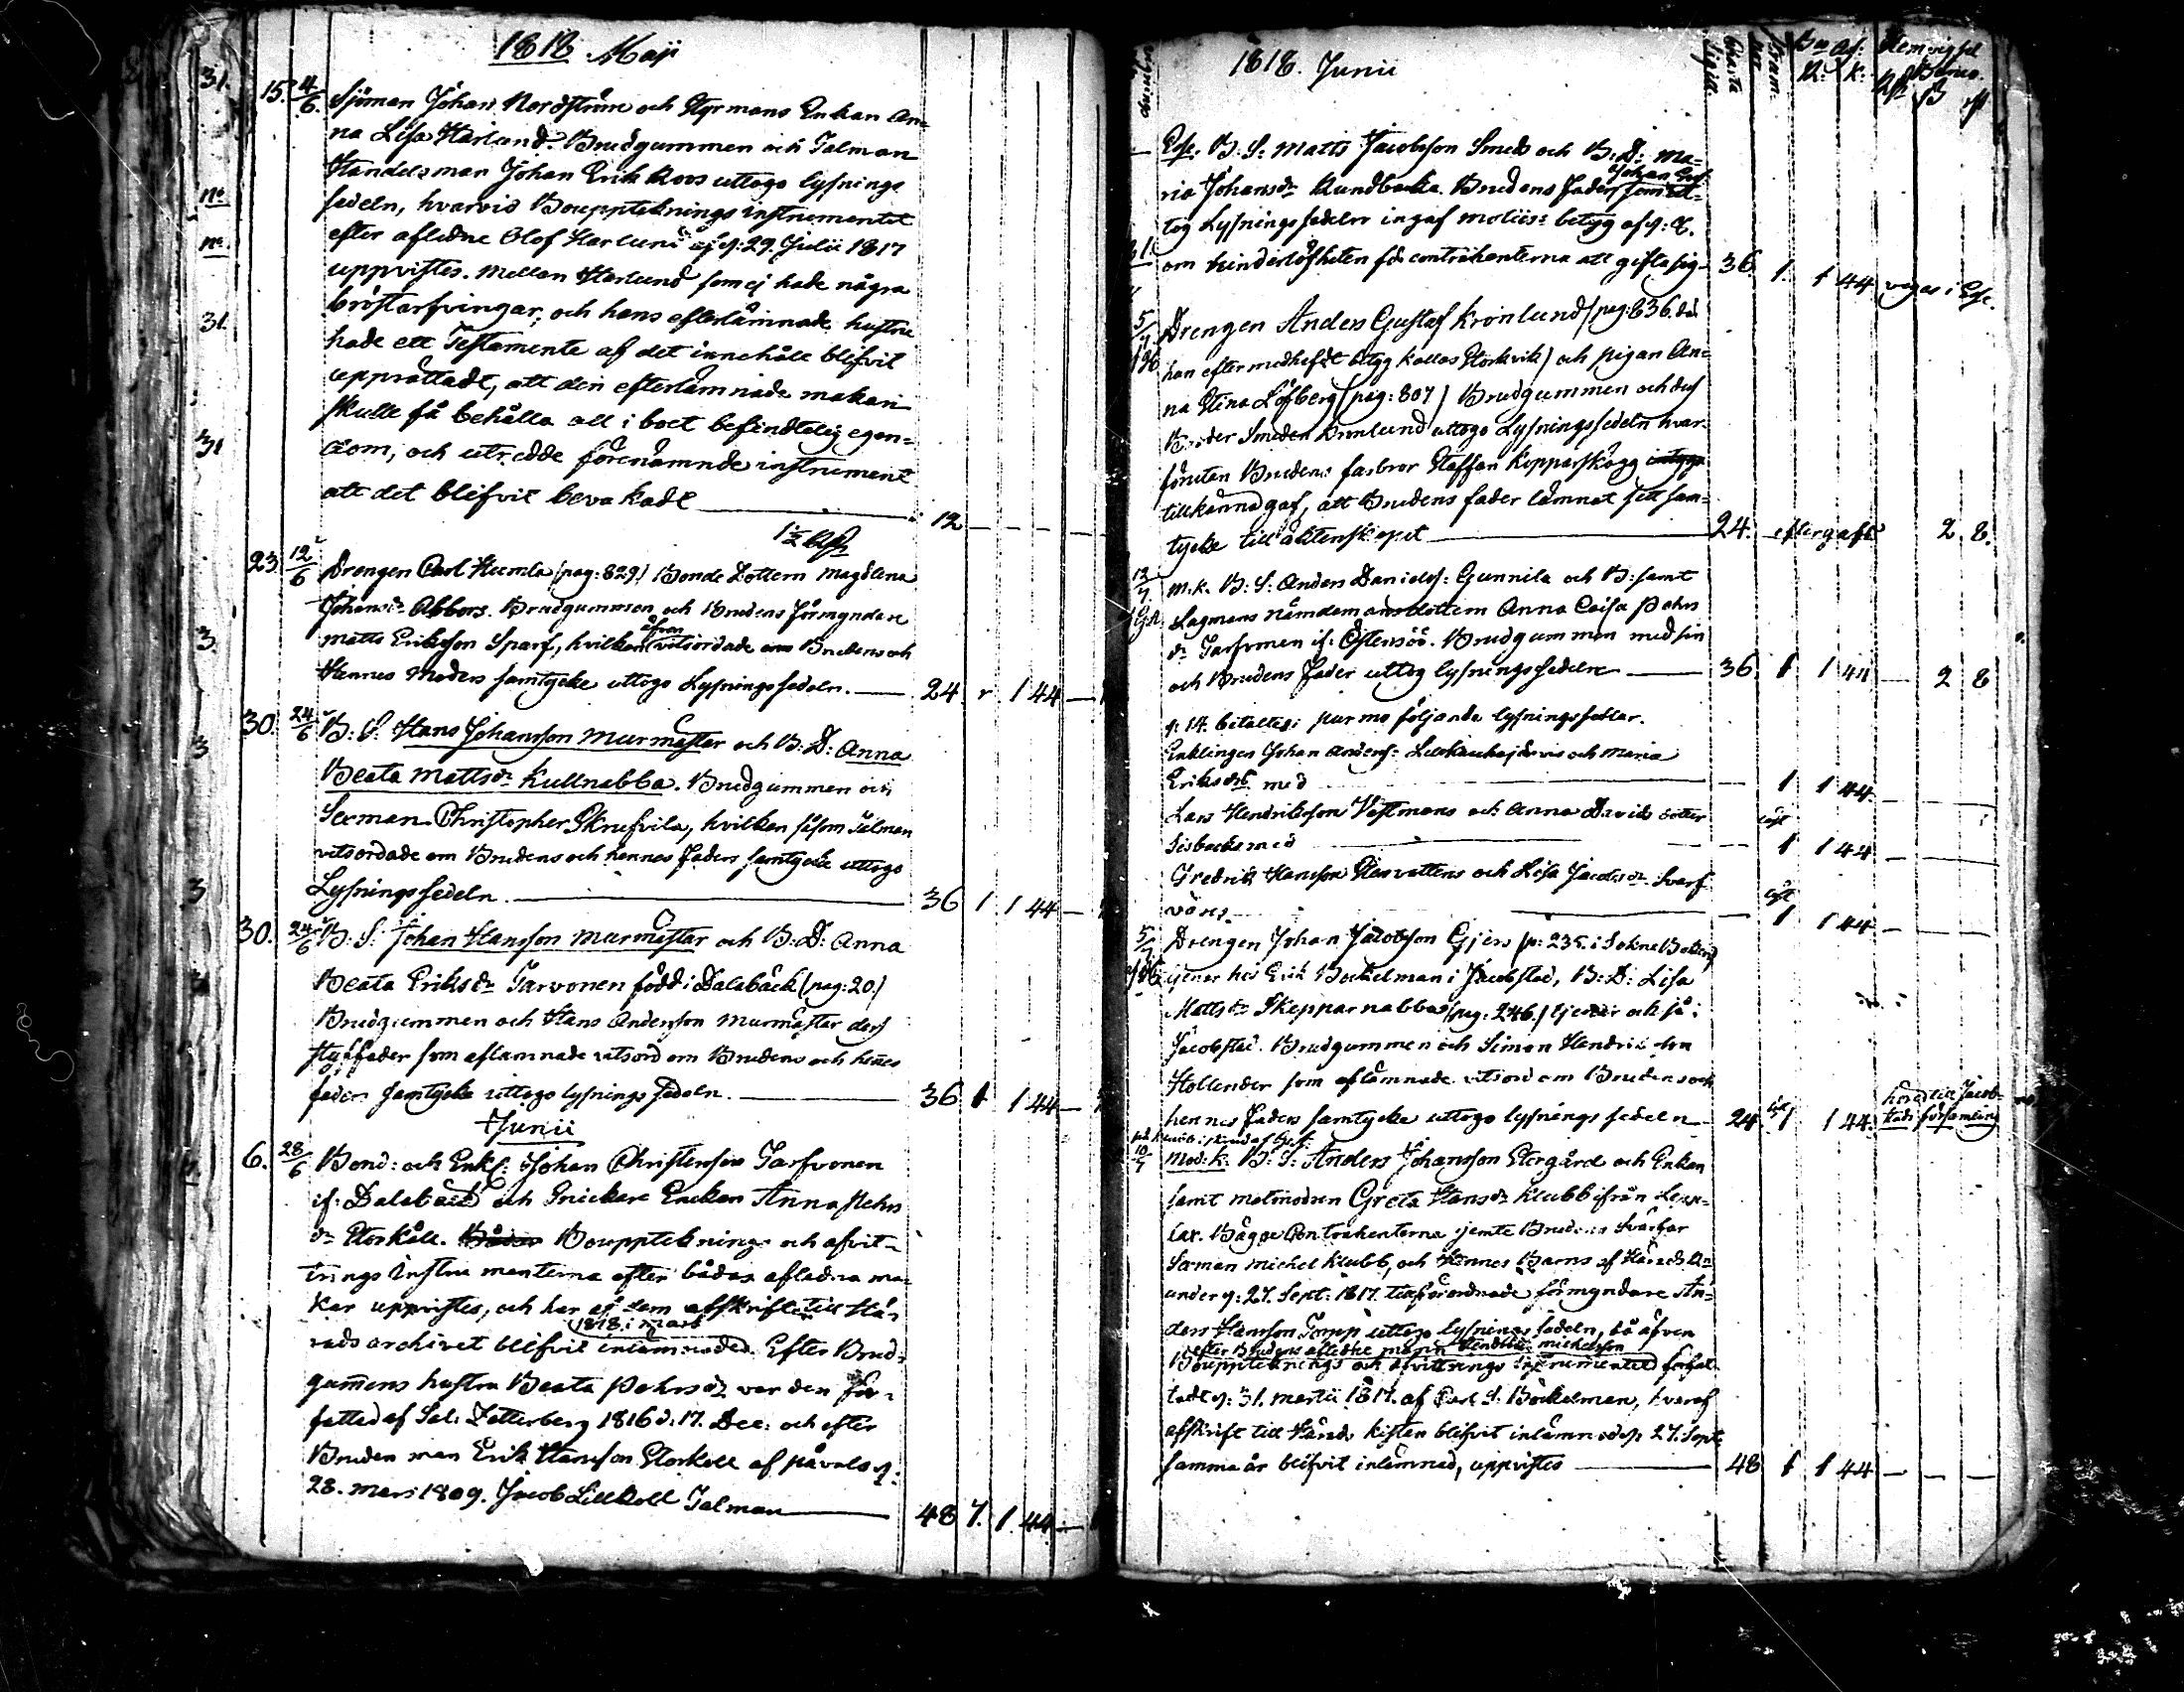 1818 Maji
15. 4/6 Sjöman Johan Nordström och Styrmans Enkan An=
na Lisa Harlund. Brudgummen och Talman
Handelsman Johan Erik Roos uttogo lysnings
sedeln, hvarvid Bouppteknings instrumentet
efter aflidne Olof Harlund af d: 29. Julii 1817
uppvistes. Mellan Harlund som ej hade några
bröstarfvingar, och hans efterlämnade hustru
hade ett Testamente af det innehåll blifvit
upprättadt, att den efterlämnade makan
skulle få behålla all i boet befindtelig egen=
dom, och utredde förenämnde instrument
att det blifvit bevakadt 12
23 12/6 Drengen Carl Humla (pag: 829.) Bonde Dottern Magdlena
Johansdr Abbors. Brudgummen och Brudens Förmyndare
Matts Eriksson Sparf, hvilken äfven vitsordade om Brudens och
Hennes Moders samtycke uttogo Lysningssedeln. 24 1 44
30. 24/6 B: S: Hans Johansson Murmästar och B: D: Anna
Beata Mattsdr Kullnabba. Brudgummen och
Sexman Christopher Skrufvila, hvilken såsom Talman
vitsordade om Brudens och hennes Faders samtycke uttogo
Lysningssedeln. 36 1 1 44
30. 24/6 B: S: Johan Hansson Murmästar och B: D: Anna
Beata Eriksdr Tarvonen född i Dalabäck (pag: 20.)
Brudgummen och Hans Andersson Murmästar dess
styffader som aflämnade vitsord om Brudens och hennes
faders samtycke uttogo lysnings sedeln. 36 1 1 44
Junii
6. 28/6 Bond: och Enkl: Johan Christensson Tarfvonen
if: Dalabäck och Snickare Enckan Anna Mehrs
dr Storkåll. Boupptekning och afvit=
trings Instrumenterna efter bådas afledna ma=
kar uppvistes, och har af dem afskrift till Hä=
rads archivet 1818 i mars blifvit inlämnaded. Efter Brud=
gum̄ens hustru Beata Pehrsdr var den för=
fattad af Sal: Zetterberg 1816 d: 17. Dec: och efter
Bruden man Erik Hansson Storkoll af Påvals d:
28. Mars 1809. Jacob Lillkoll Talman 48 1. 1 44
1818. Junii
Charta Sigill.
Pse. B: S: Matts Jacobsson Smeds och B: D: Ma=
ria Johansdr Kundbacka. Brudens Fader Johan som ut=
tog Lysningssedeln ingaf betyg af d: 8.
om hinderlösheten för contrahenterna att gifta sig 36 1. 1 44
5/7 Drengen Anders Gustaf Kronlund (pag: 836. då
han efter medhafdt betyg kallas Storkvik) och pigan An=
na Stina Löfberg (pag: 807) Brudgummen och dess
Broder Smeden Kronlund uttogo Lysningssedeln hvar
förutan Brudens farbror Staffan Kopparskägg
tillkänna gaf, att Brudens fader lämnat sitt sam=
tycke till äktenskapet 24. eftergaft 2 8.
12/7 m.k. B: S: Anders Danielss: Gunnila och B: samt
Lagmans nämdemansdottern Anna Caisa Pehrs
dr Tarfvonen if: Östensöö. Brudgummen med sin
och Brudens Fader uttog lysningssedeln 36 1 1 44 2 8
d: 14. betaltes: pur mo följande lysningssedlar.
Enklingen Johan Anderss: och Maria
Eriksdr med 1 1 44
Lars Hendriksson Vestmans och Anna Davids dotter
Sisbacka med 1 1 44
Fredrik Hansson och Lisa Jacobsdr Svarf
vars. 1 1 44
5/7 Drengen Johan Jacobsson Gjers (p: 235. i Sokne Boken)
tjenar hos Erik Bockelman i Jacobstad, B: D: Lisa
Mattsdr Skepparnabba (pag: 246.) tjenar och så i
Jacobstad. Brudgummen och Simon Hendriksson
Hollender som aflämnade vitsord om Brudens och
hennes Faders samtycke uttogo lysnings sedeln 24 1 1 44 hörd till Jacob=
stads församling
10/7 Mod: k: B: S: Anders Johansson Stergård och Enkan
samt matmodren Greta Hansdr Klubb ifrån Lepp=
lax. Bägge Contrahenterna jemte Brudens Svärfar
Sexman Michel Klubb, och Hennes Barns af Härads Rn
under d: 27. Sept: 1817. tillförordnade förmyndare An=
ders Hansson Topp uttogo lysnings sedeln, då äfven
efter Brudens aflidne mann Hendrik Michelsson
Boupptecknings och afvittrings Instrumentet förfat=
tadt d: 31. Martii 1817. af Carl S: Böckelman, hvaraf
afskrift till Härads kistan blifvit inlämnad d: 27. Sept:
samma år blifvit inlämnad, uppvistes 48 1 1 44